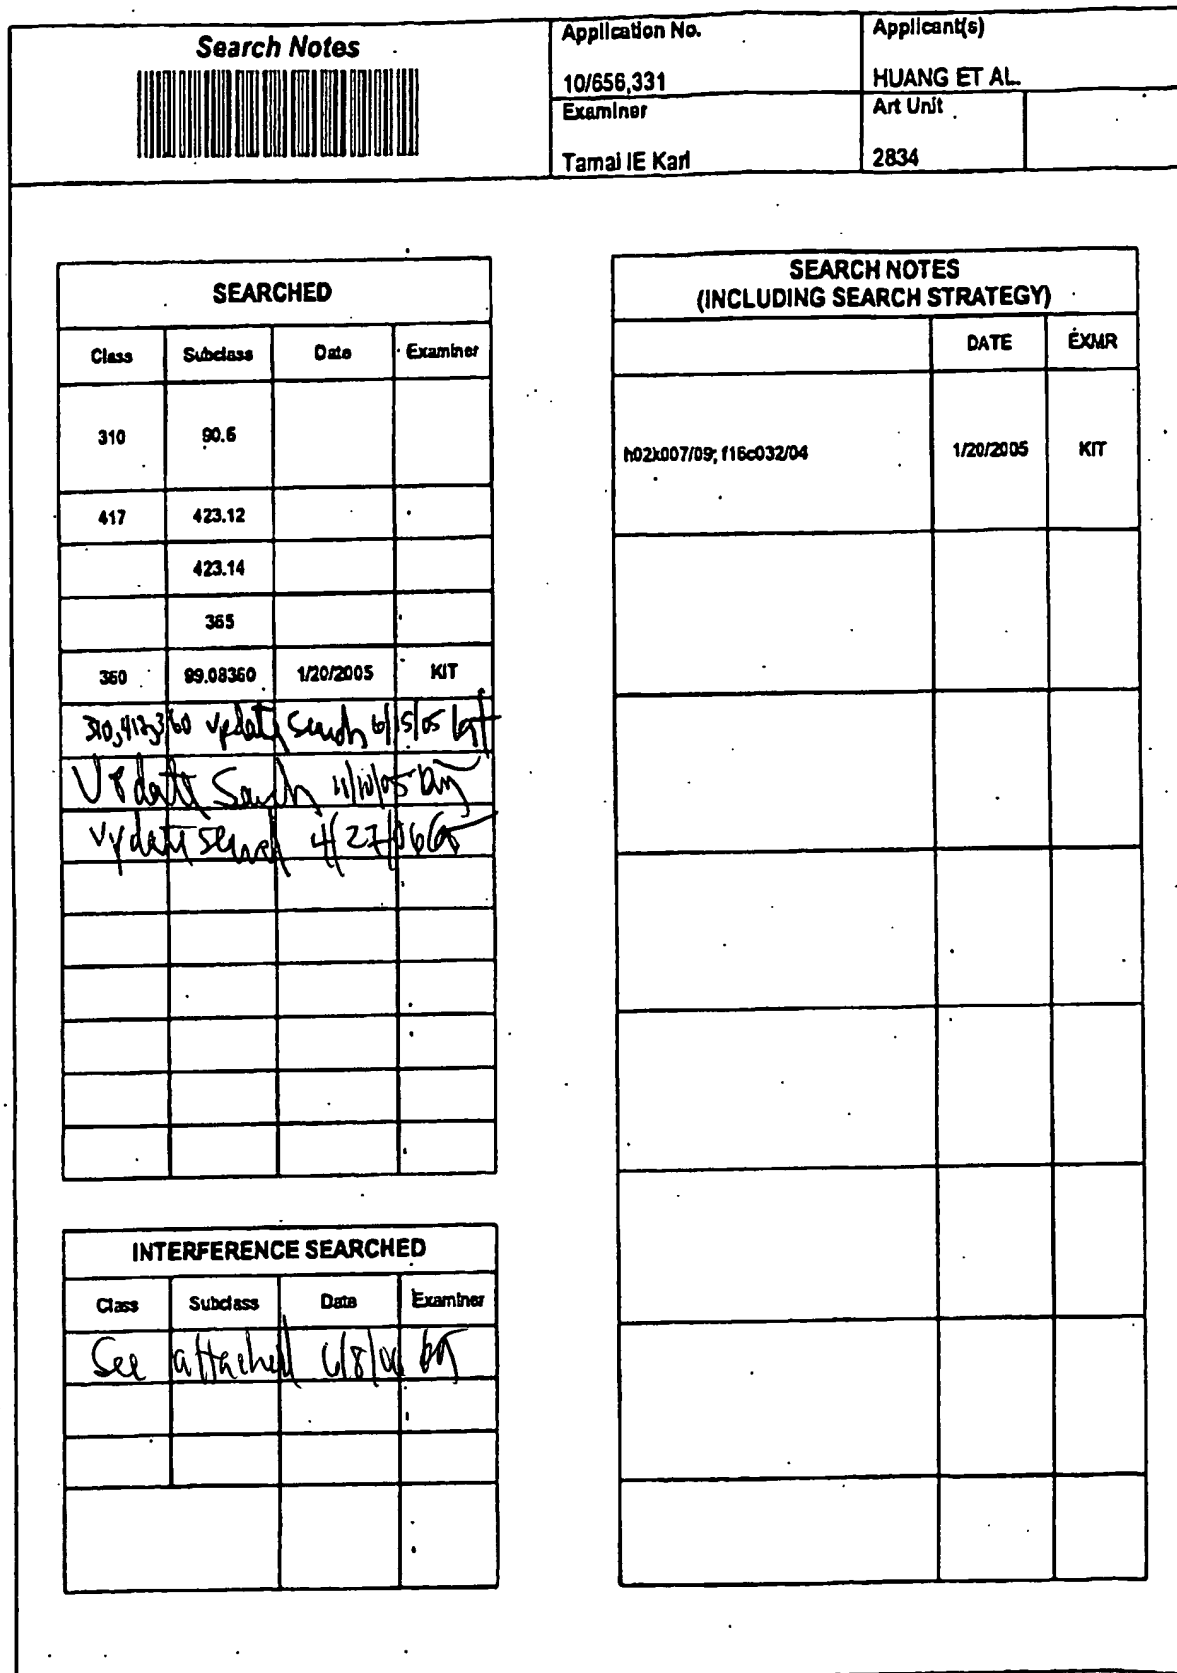 Search Notes
Application No.
10/656,331
Applicant(s)
HUANG ET AL.
Examiner
Tamai IE Karl
Art Unit
2834
SEARCHED
Class Subclass Date Examiner
310 90.5
417 423.12
423.14
365
360 99.08360 1/20/2005 KIT
310,417,360 update search 6/15/05
Update Search 11/10/05
update search 4/27/06
INTERFERENCE SEARCHED
Class Subclass Date Examiner
See attached 6/8/06
SEARCH NOTES
(INCLUDING SEARCH STRATEGY)
DATE EXMR
h02k007/09; f16c032/04 1/20/2005 KIT